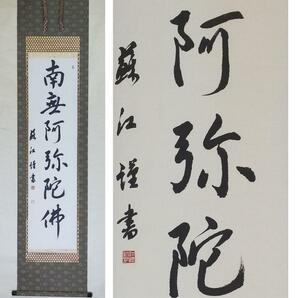 南無阿弥陀佛
蘇江謹書
阿弥陀
蘇江謹書